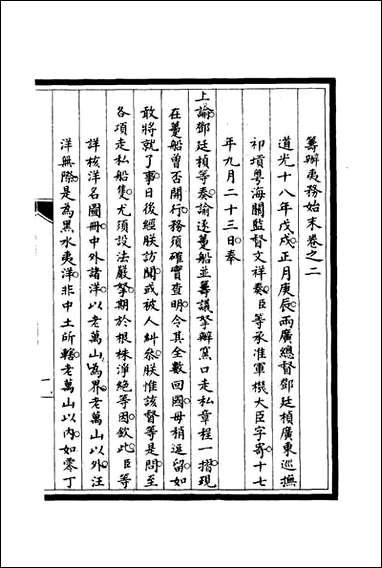 籌辦夷務始末卷之二
道光十八年戊戌正月庚辰兩廣總督鄧廷楨廣東巡撫
祁𡎴粵海關監督文祥奏臣等承准軍機大臣字寄十七
年九月二十三日奉
上諭鄧廷楨等奏諭逐躉船並籌議拏辦窯口走私章程一摺現
在躉船曾否開行務須確實查明令其全數回國毋稍逗留如
敢將就了事日後經朕訪聞或被人糾叅朕惟該督等是問至
各項走私船隻尤須設法嚴拏期於根株淨絕等因欽此臣等
詳核洋名圖冊中外諸洋以老萬山為界老萬山以外汪
洋無際是為黑水夷洋非中土所轄老萬山以內如零丁